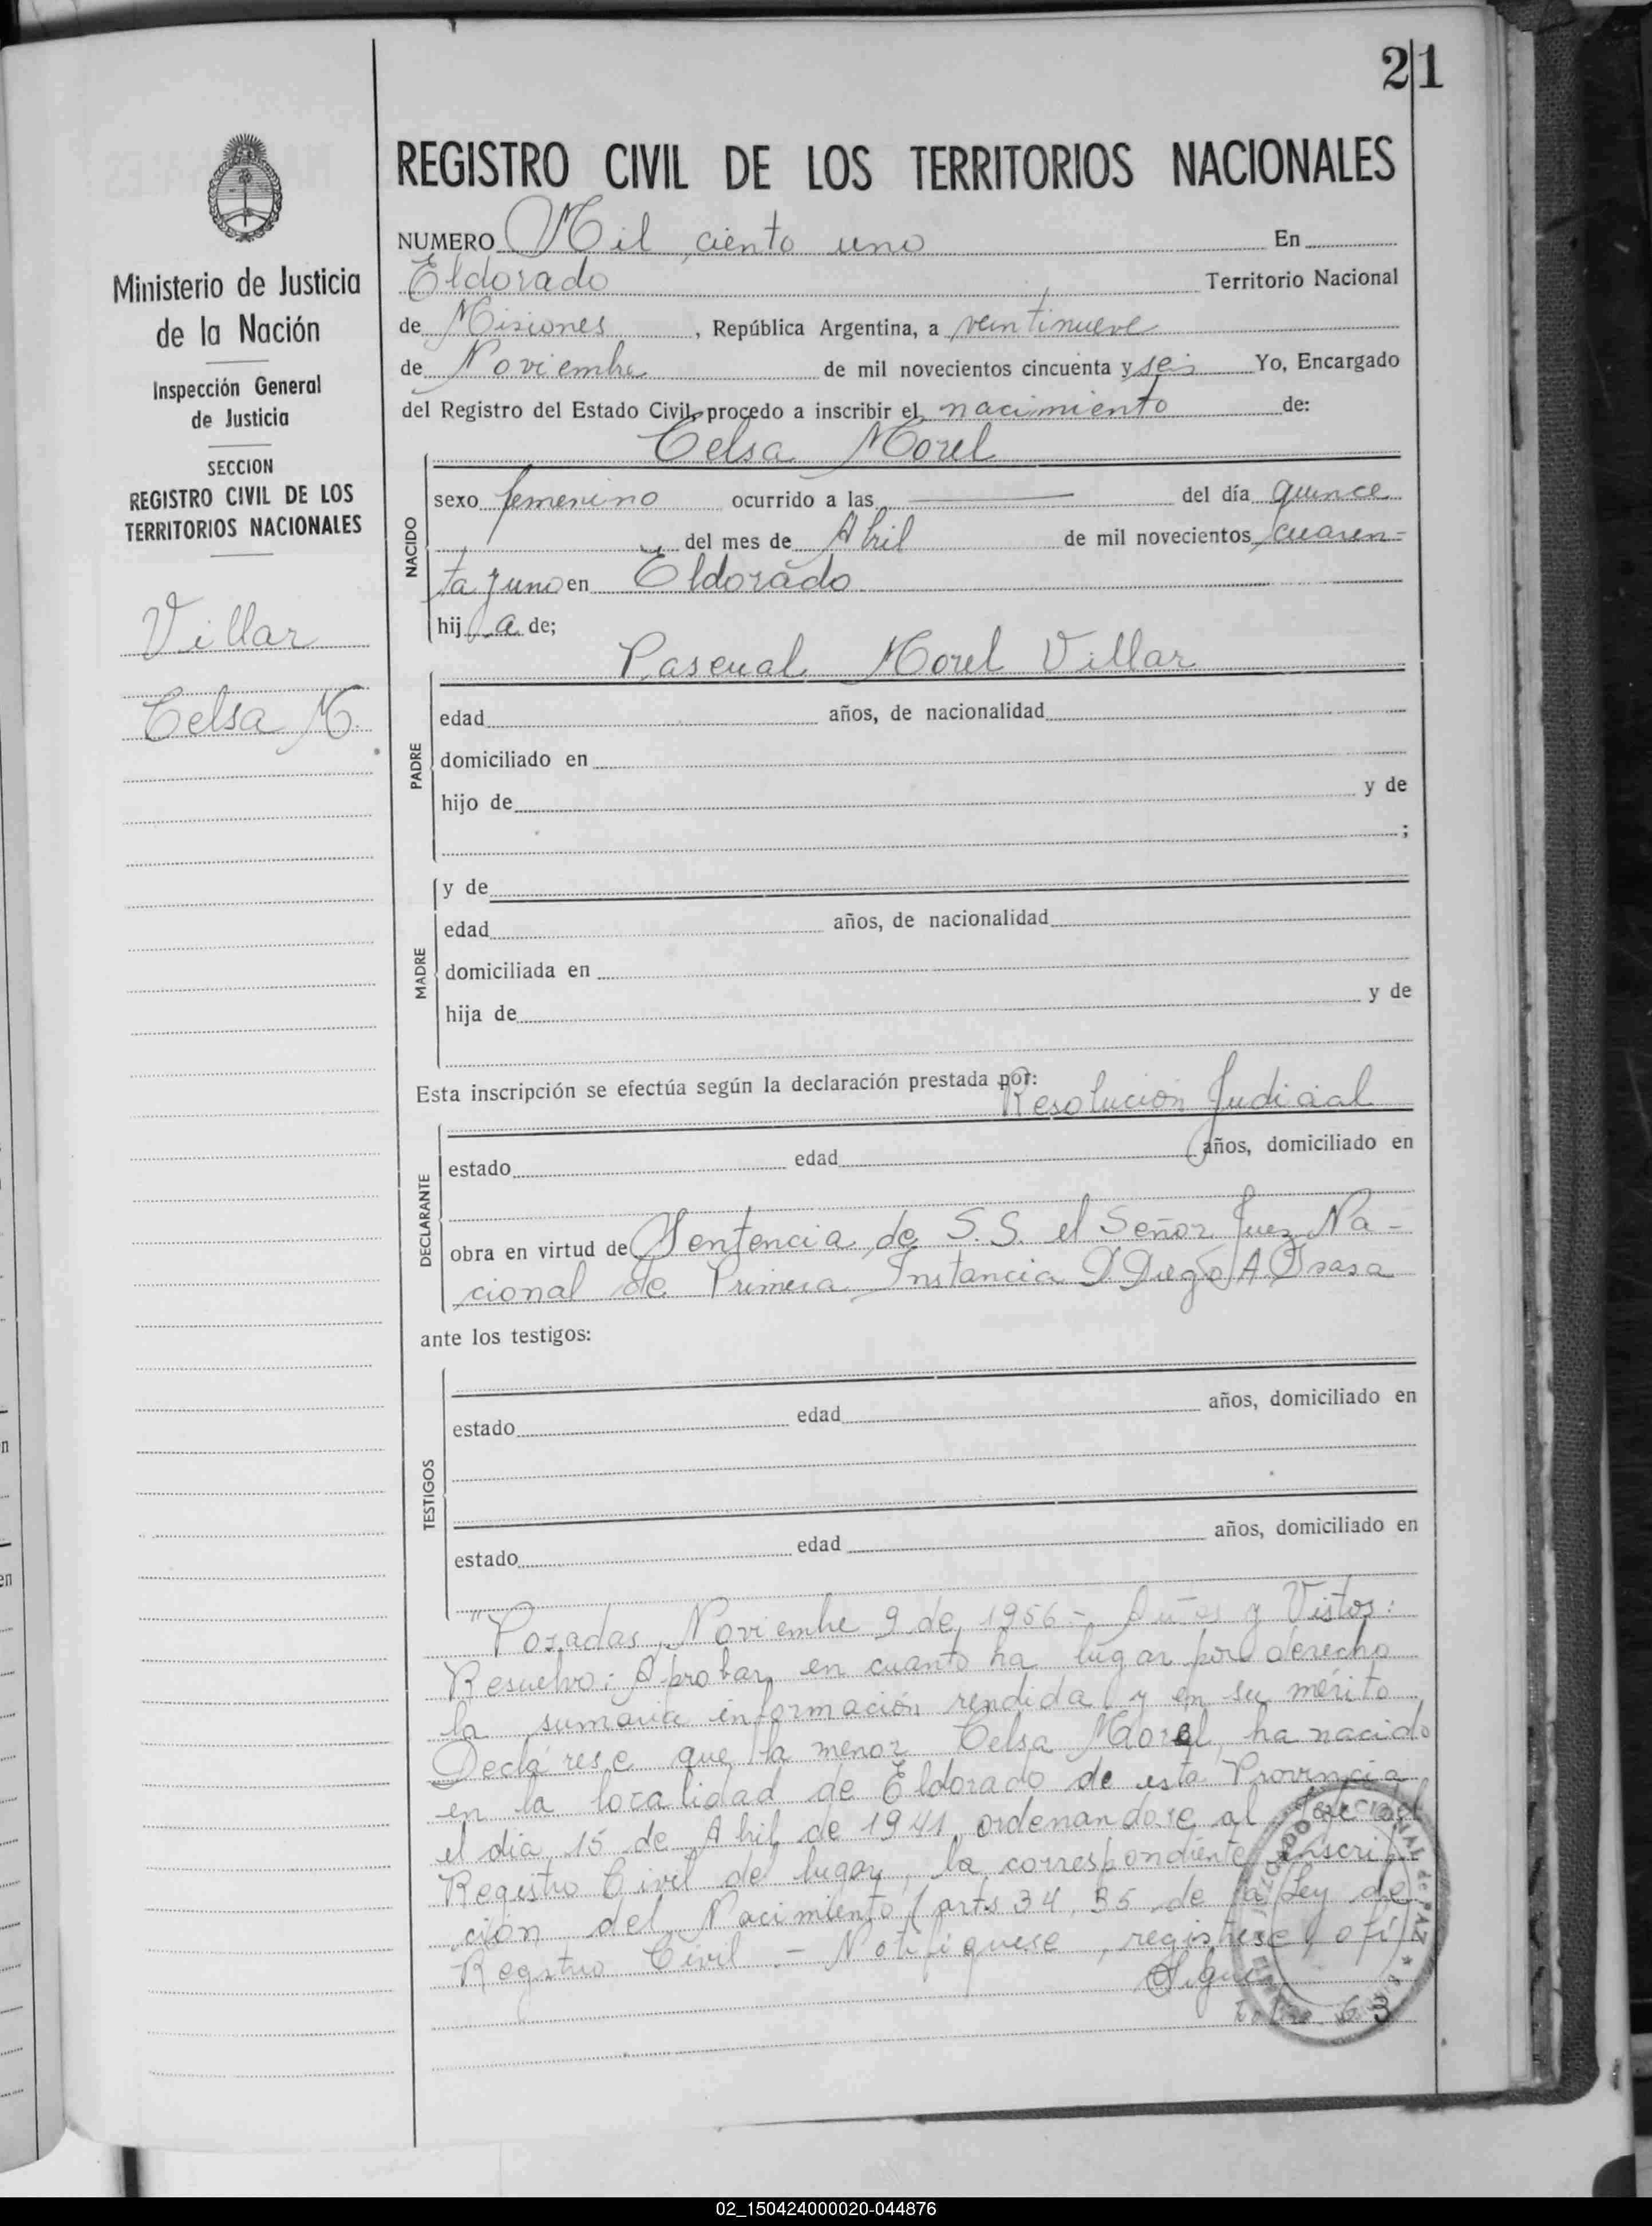 21
REGISTRO CIVIL DE LOS TERRITORIOS NACIONALES
Ministerio de Justicia
de la Nación
Inspección General
de Justicia
SECCION
REGISTRO CIVIL DE LOS
TERRITORIOS NACIONALES
Villar
Celsa M.
NUMERO Mil ciento uno En
Eldorado Territorio Nacional
de Misiones, República Argentina, a veintinueve
de Noviembre de mil novecientos cincuenta y seis Yo, Encargado
del Registro del Estado Civil, procedo a inscribir el nacimiento de:
Celsa Morel
NACIDO
sexo femenino ocurrido a las del día quince
del mes de Abril de mil novecientos cuaren-
ta y uno en Eldorado
hija de;
Pascual Morel Villar
PADRE
edad años, de nacionalidad
domiciliado en
hijo de y de
;
MADRE
y de
edad años, de nacionalidad
domiciliada en
hija de y de
Esta inscripción se efectúa según la declaración prestada por:
Resolución Judicial
DECLARANTE
estado edad años, domiciliado en
obra en virtud de Sentencia de S.S. el Señor Juez Na-
cional de Primera Instancia D. Diego A.
ante los testigos:
TESTIGOS
estado edad años, domiciliado en
estado edad años, domiciliado en
"Posadas, Noviembre 9 de 1956 - y Vistos:
Resuelvo: Aprobar en cuanto ha lugar por derecho
la sumaria información rendida y en su mérito
Declárese que la menor Celsa Morel, ha nacido
en la localidad de Eldorado de esta Provincia
el día 15 de Abril de 1941 ordenandose al Jefe del
Registro Civil del lugar, la correspondiente inscrip
ción del Nacimiento (arts 34, 35 de la Ley de
Registro Civil - Notifiquese, registrese, ofi
Sigue
Folio 63
02_150424000020-044876